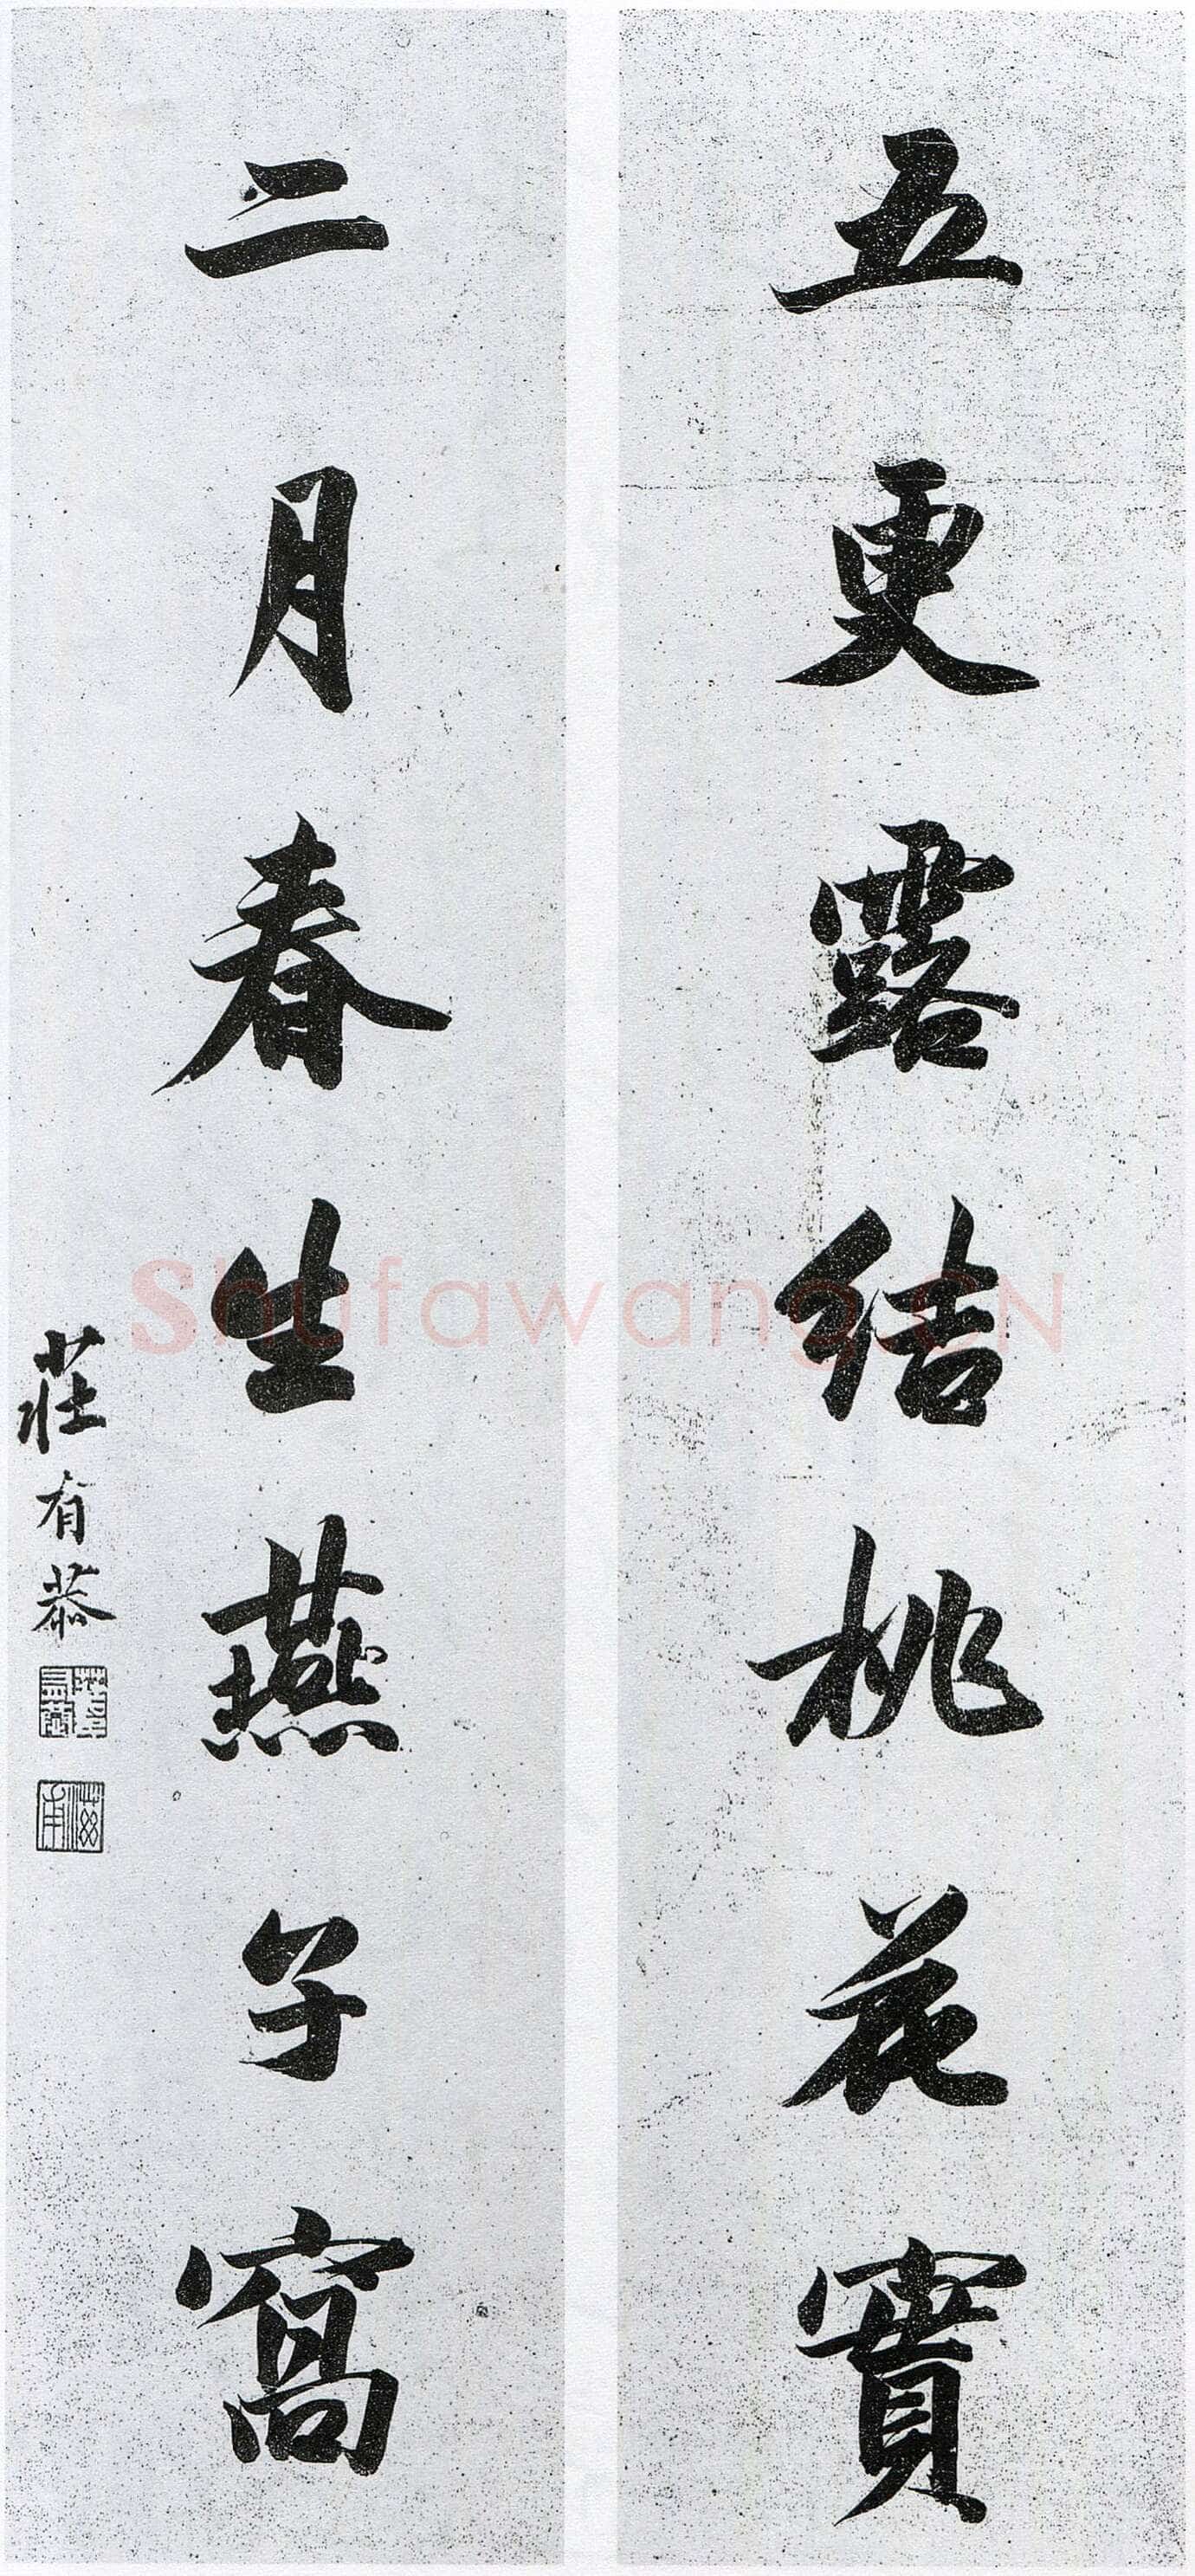 五更露結桃花實
二月春生燕子窩
莊有恭
Shufawang.CN